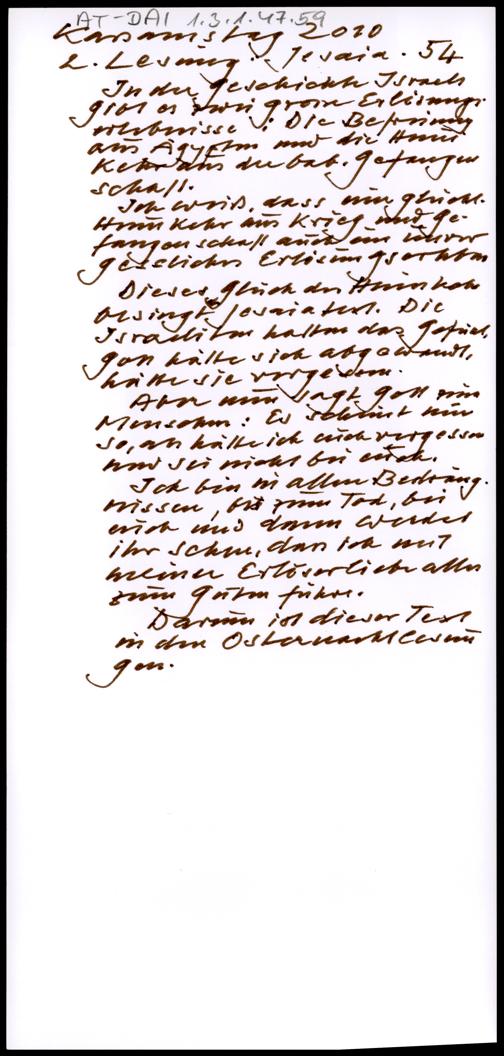 AT-DAI 1.3.1.47.59
Karsamstag 2010
2. Lesung: Jesaia. 54
In der Geschichte Israels
gibt es zwei grosse Erlösungs-
erlebnisse: Die Befreiung
aus Ägypten und die Heim
kehr aus der bab. Gefangen
schaft.
Ich weiß, dass eine glückl.
Heimkehr aus Krieg und Ge-
fangenschaft auch ein unver
gessliches Erlösungserlebnis
Dieses Glück der Heimkehr
besingt Jesaiatext. Die
Israeliten hatten das Gefühl,
Gott hätte sich abgewandt,
hätte sie vergessen.
Aber nun sagt Gott zum
Menschen: Es scheint nur
so, als hätte ich euch vergessen
und sei nicht bei euch.
Ich bin in allen Bedräng.
nissen, bis zum Tod, bei
euch und dann werdet
ihr sehen, dass ich mit
meiner Erlöserliebe alles
zum Guten führe.
Darum ist dieser Text
in den Osternachtlesun
gen.